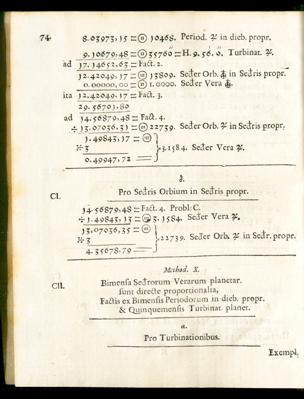 74
8.03973,15 = ⑪ 10468. Period. ♃ in dieb. propr.
9.10679,48 = ⑪ 35760 = H. 9. 56. 0. Turbinat. ♃.
ad 17.14652,63 = Fact. 2.
12.42049,17 = ⑪ 13809. Seder Orb. in Sedris propr.
0.00000,00 = ⑪ 1.0000. Seder Vera
ita 12.42049,17 = Fact. 3.
29.56701,80
ad 14.56879,48 = Fact. 4.
÷ 13.07036,31 = ⑪ 22739. Seder Orb. ♃ in Sedris propr.
1.49843,17 = ⑪
÷3 3.1584. Seder Vera ♃.
0.49947,72 =
b.
CI. Pro Sedris Orbium in Sedris propr.
14.56879,48 = Fact. 4. Probl. C.
÷ 1.49843,13 = 3.1584. Seder Vera ♃.
13.07036,35 = ⑪
÷3 22739. Seder Orb. ♃ in Sedr. propr.
4.35678,79 =
Method. X.
CII. Bimensa Sedrorum Verarum planetar.
sunt directe proportionalia,
Factis ex Bimensis Periodorum in dieb. propr.
& Quinquemensis Turbinat. planet.
a.
Pro Turbinationibus.
Exempl.